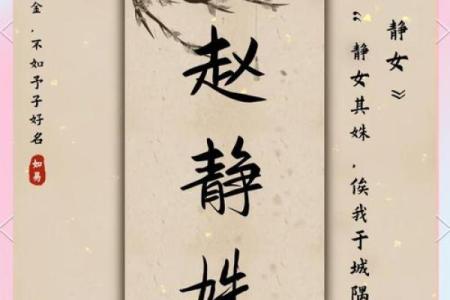 静女》
“静女其姝，俟我于城隅
赵静姝
金，不如予子好名
如易